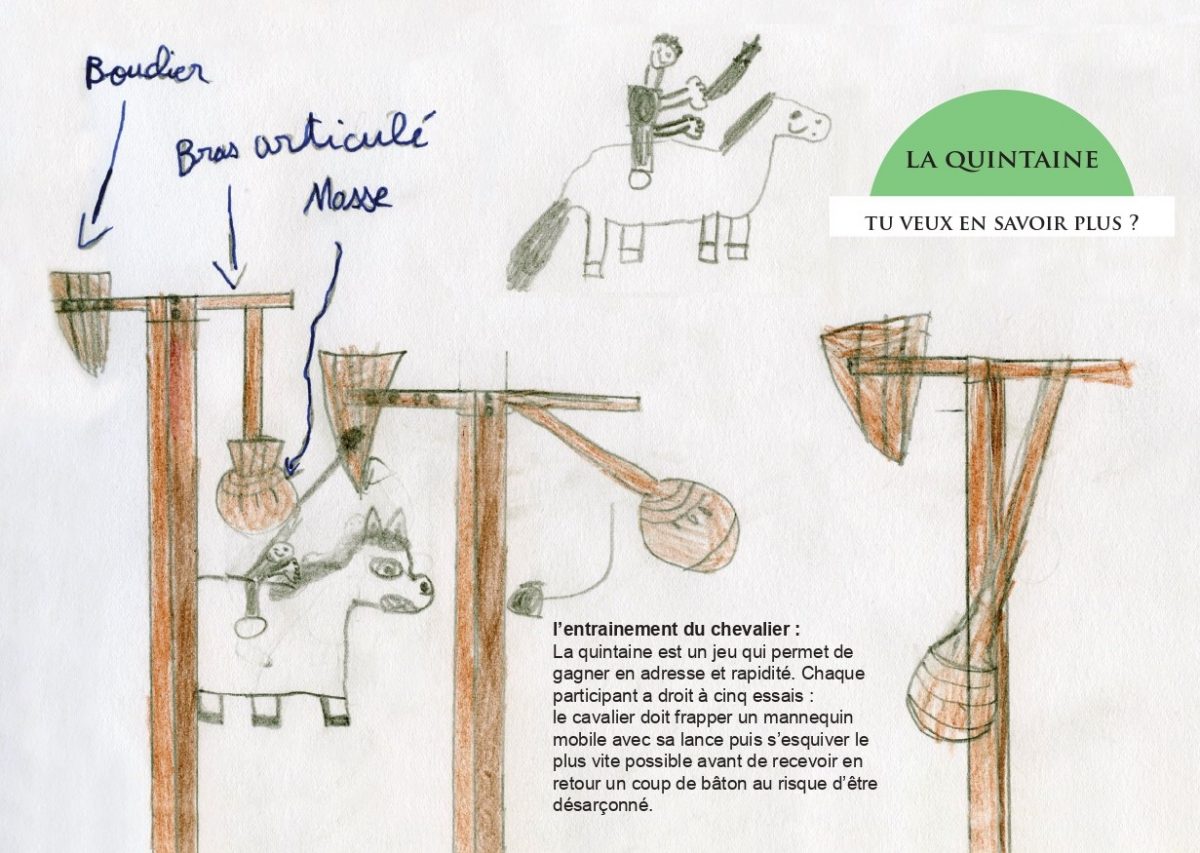 Bouclier
Bras articulé
Masse
LA QUINTAINE
TU VEUX EN SAVOIR PLUS ?
l'entrainement du chevalier :
La quintaine est un jeu qui permet de
gagner en adresse et rapidité. Chaque
participant a droit à cinq essais :
le cavalier doit frapper un mannequin
mobile avec sa lance puis s'esquiver le
plus vite possible avant de recevoir en
retour un coup de bâton au risque d'être
désarçonné.